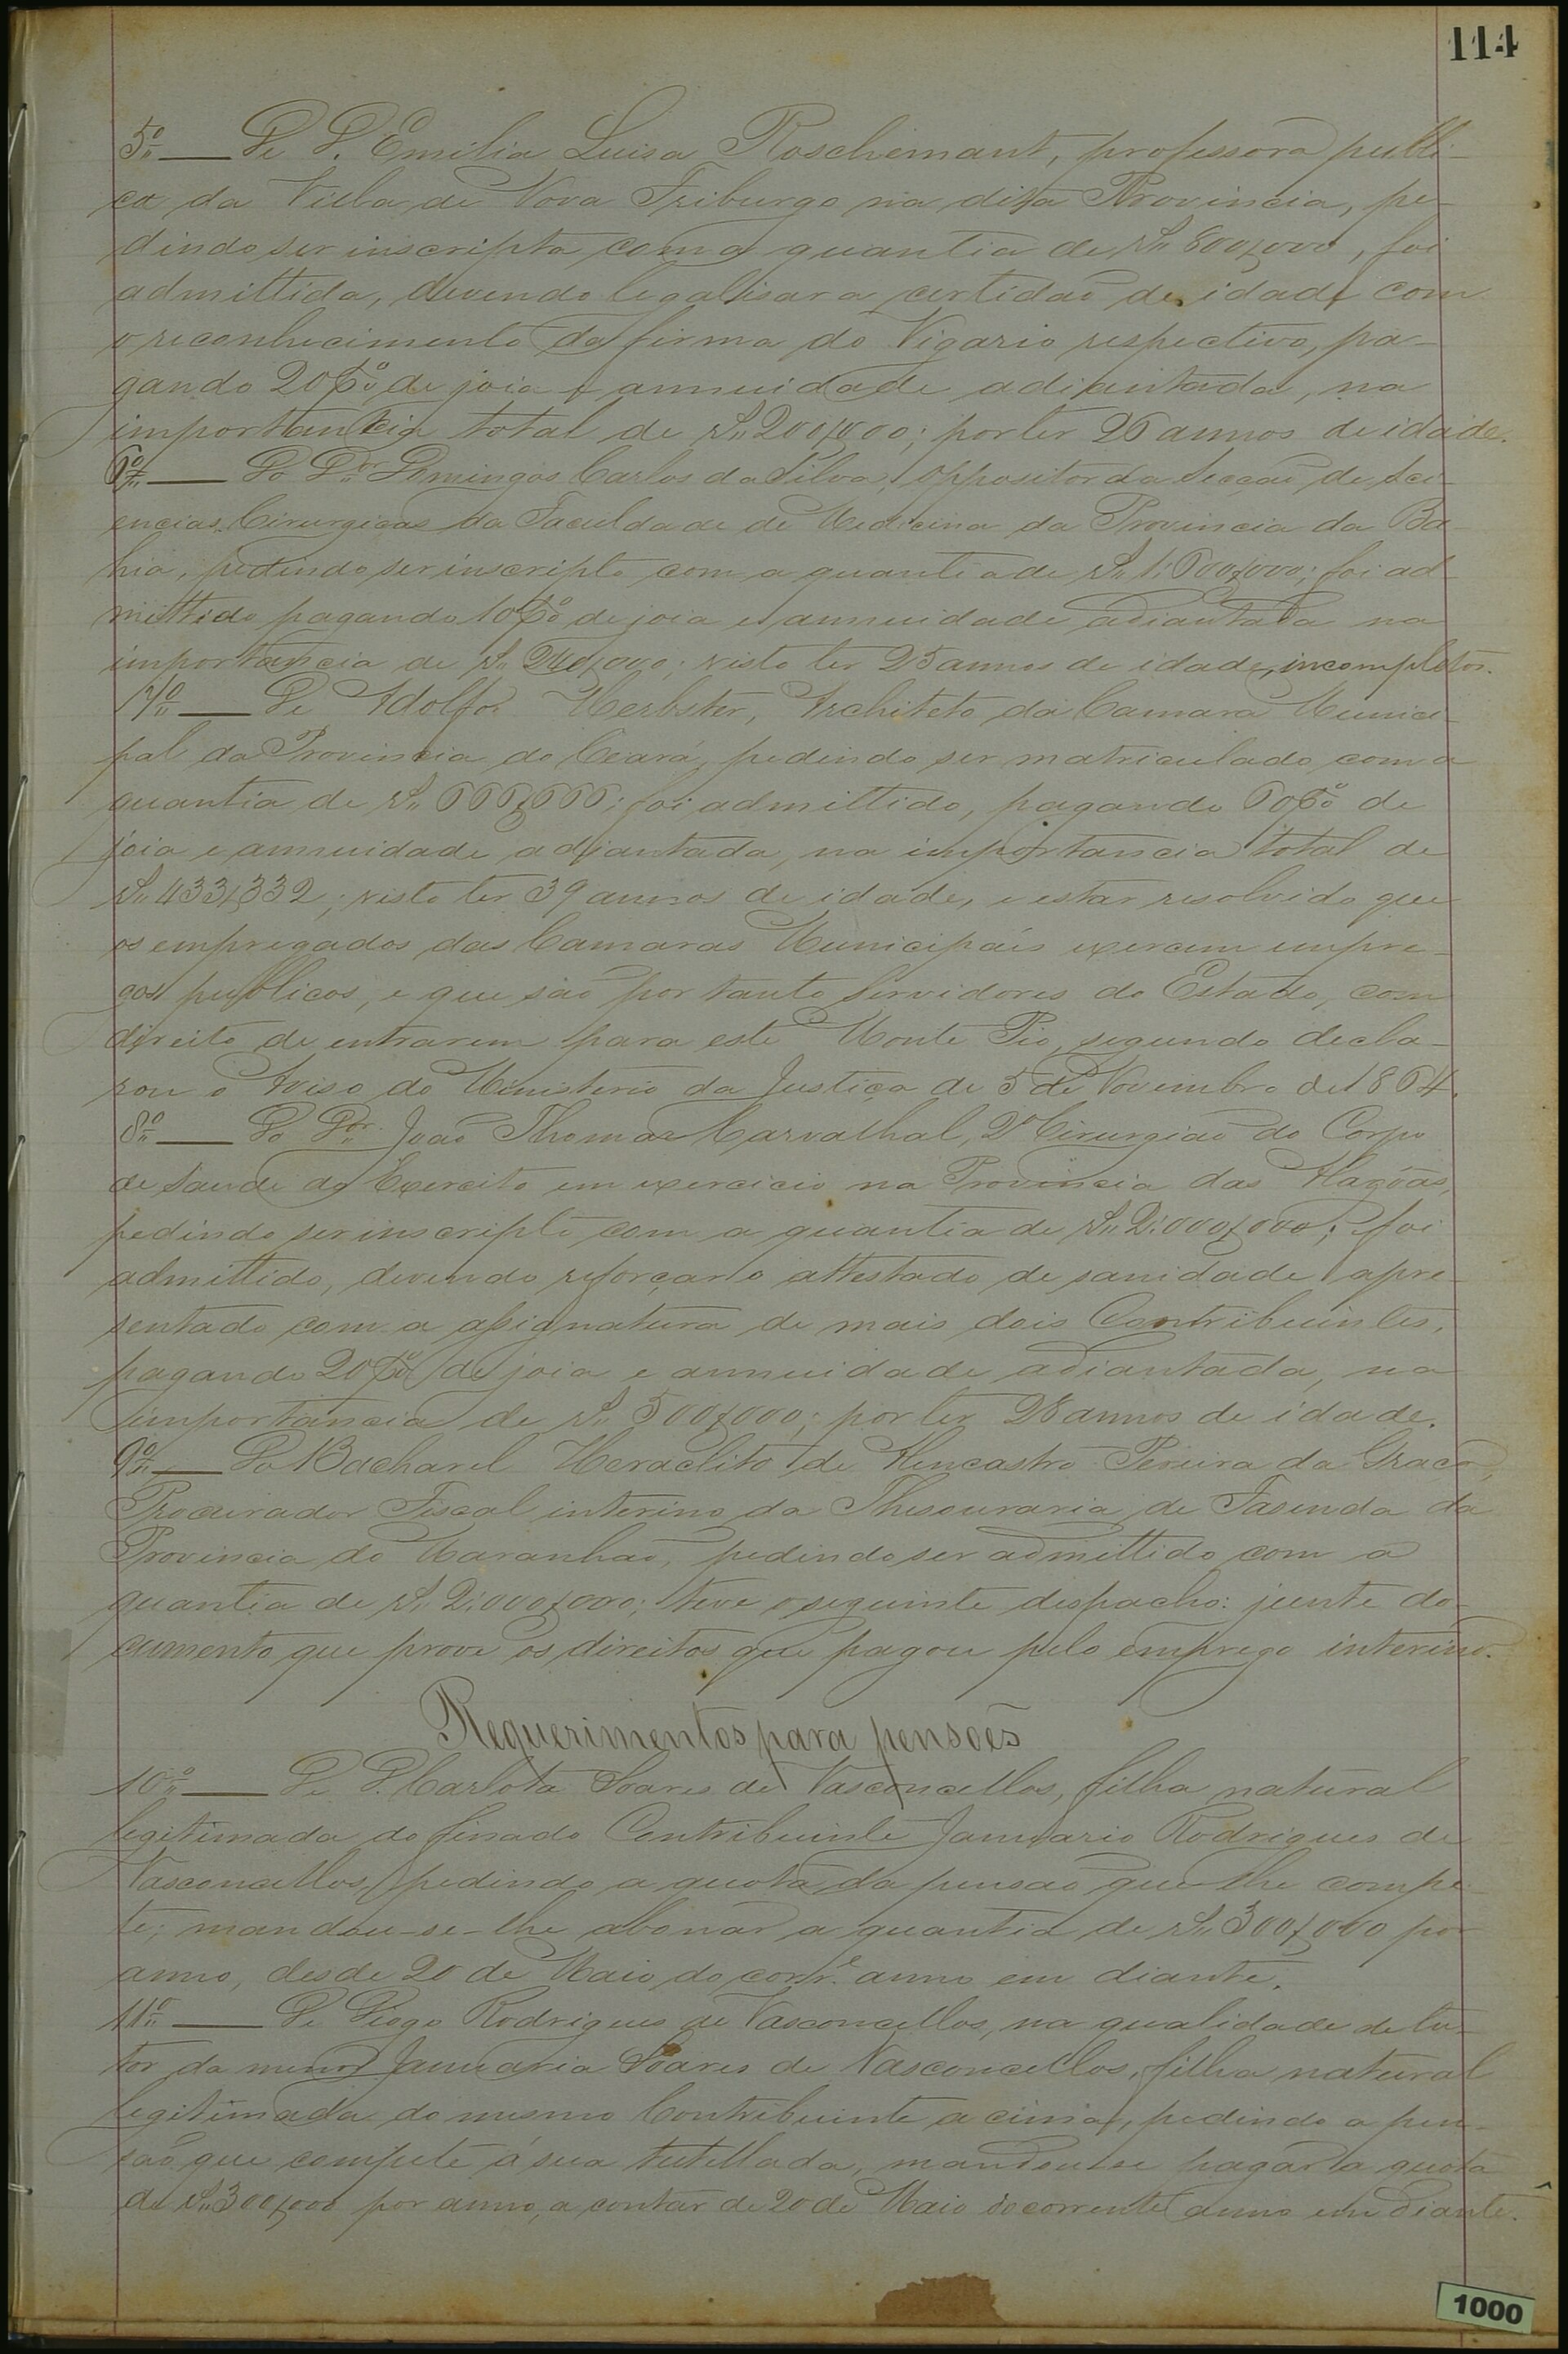 114
5º — De D. Emilia Luisa Roschemant, professora publi-
ca da Villa de Nova Friburgo na dita Provincia, pe-
dindo ser inscripta com a quantia de Rs 800$000, foi
admittida, devendo legalisar a certidaõ de idade com
o reconhecimento da firma do Vigario respectivo, pa-
gando 20 % de joia e annuidade adiantada, na
importancia total de Rs 200$000; por ter 26 annos de idade.
6º — Do Dor Domingos Carlos da Silva, Oppositor da Secçaõ de Sci-
encias Cirurgicas da Faculdade de Medicina da Provincia da Ba-
hia, pedindo ser inscripto com a quantia de Rs 1:600$000; foi ad-
mittido pagando 10 % de joia e annuidade adiantada na
importancia de Rs 240$000; visto ter 25 annos de idade, incompletos.
7º — De Adolfo Herbster, Architeto da Camara Munici-
pal da Provincia do Ceará, pedindo ser matriculado com a
quantia de Rs 666$666; foi admittido, pagando 60 % de
joia e annuidade adiantada, na importancia total de
Rs 433$332; visto ter 39 annos de idade, e estar resolvido que
os empregados das Camaras Municipais exercem empre-
gos publicos, e que saõ por tanto Servidores do Estado, com
direito de entrarem para este Monte Pio, segundo decla-
rou o Aviso do Ministerio da Justiça de 5 de Novembro de 1864.
8º — Do Dor João Thomaz Carvalhal, 2º Cirurgiaõ do Corpo
de Saude do Exercito em exercicio na Provincia das Alagôas,
pedindo ser inscripto com a quantia de Rs 2:000$000; foi
admittido, devendo reforçar o attestado de sanidade apre-
sentado com a assignatura de mais dois Contribuintes,
pagando 20 % de joia e annuidade adiantada, na
importancia de Rs 500$000; por ter 28 annos de idade.
9º — Do Bacharel Heraclito de Alencastro Pereira da Graça,
Procurador Fiscal interino da Thesouraria de Fasenda da
Provincia do Maranhaõ, pedindo ser admittido com a
quantia de Rs 2:000$000; teve o seguinte despacho: junte do-
cumento que prove os direitos que pagou pelo emprego interino.
Requerimentos para pensoẽs
10º — De D. Carlota Soares de Vasconcellos, filha natural
legitimada do finado Contribuinte Januario Rodrigues de
Vasconcellos, pedindo a quota da pensaõ que lhe compe-
te; mandou-se-lhe abonar a quantia de Rs 300$000 por
anno, desde 20 de Maio do corre anno em diante.
11º — De Diogo Rodrigues de Vasconcellos, na qualidade de tu-
tor da menor Januaria Soares de Vasconcellos, filha natural
legitimada do mesmo Contribuinte acima, pedindo a pen-
saõ que compete á sua tutellada, mandou-se pagar a quota
de Rs 300$000 por anno, a contar de 20 de Maio do corrente anno em diante.
1000